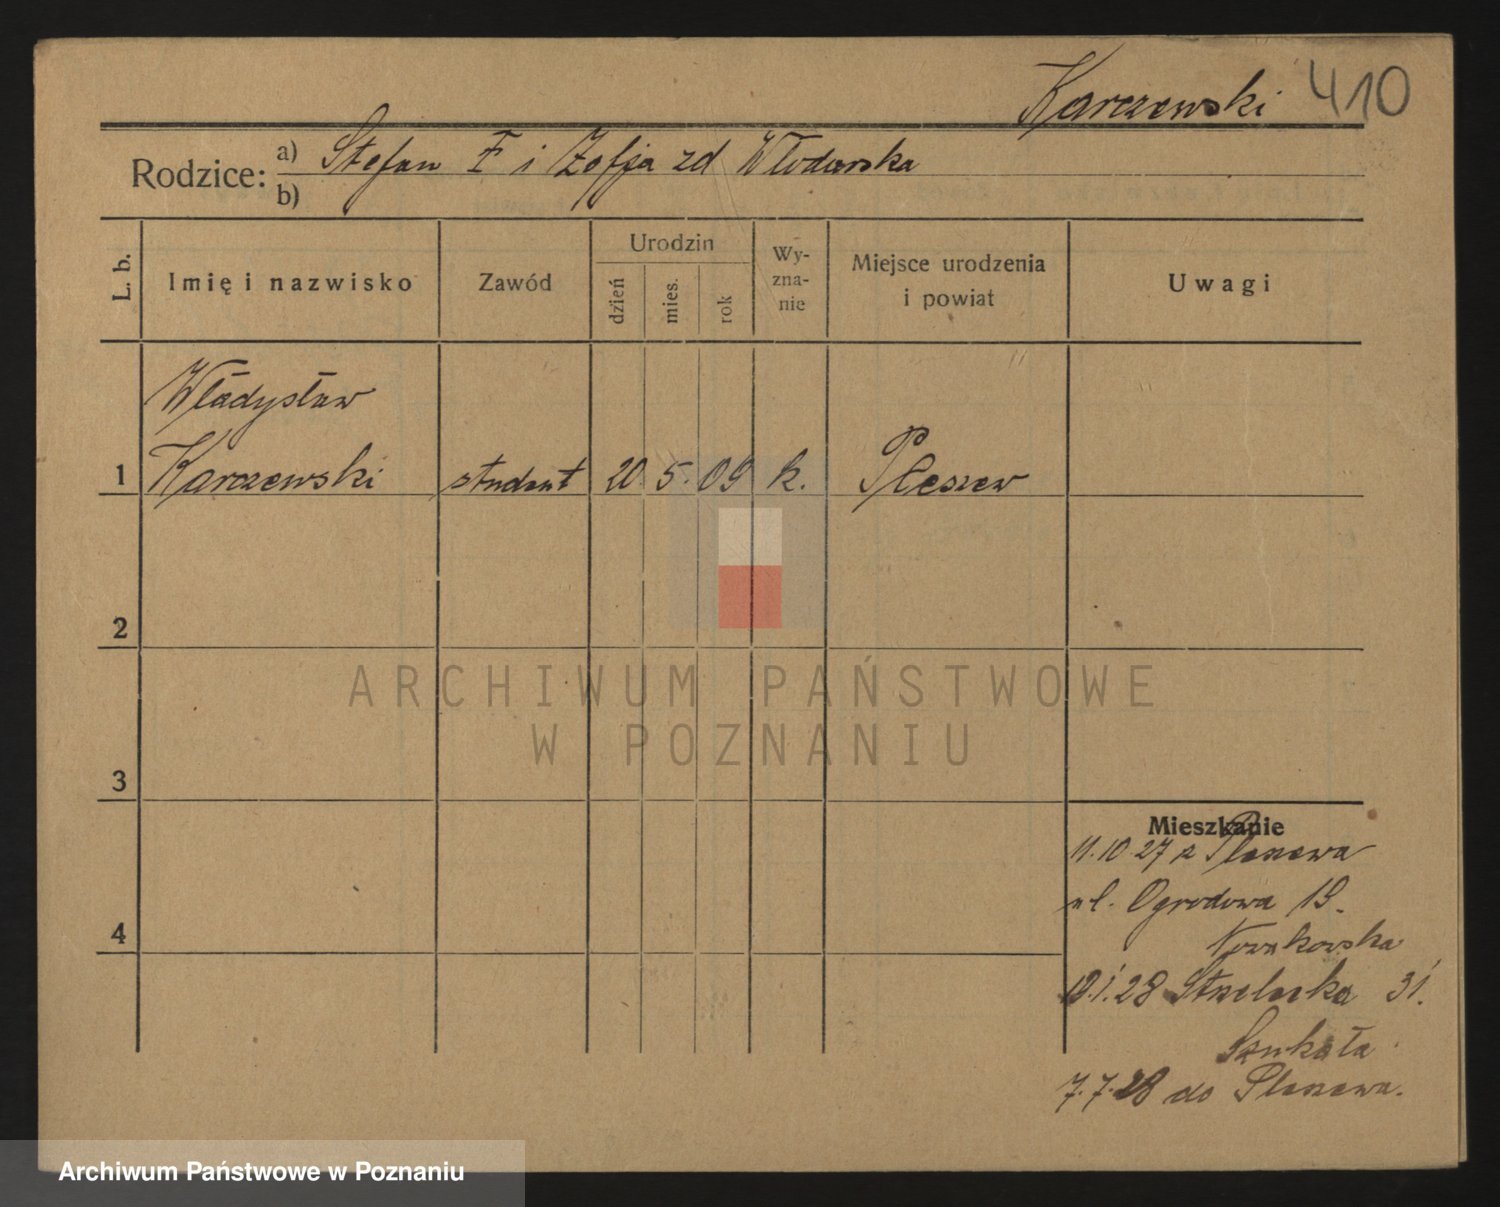 Karczewski 410
Rodzice: a) Stefan F i Zofja zd Włodarska
b)
L. b. Imię i nazwisko Zawód Urodzin dzień mies. rok Wy-zna-nie Miejsce urodzenia i powiat Uwagi
Władysław
1 Karczewski student 20. 5. 09 k. Pleszew
2
3
4
Mieszkanie
11.10.27 z Pleszewa
ul. Ogrodowa 19.
Nowakowska
18.1.28 Strzelecka 31.
Szukała
7.7.28 do Pleszewa.
ARCHIWUM PAŃSTWOWE
W POZNANIU
Archiwum Państwowe w Poznaniu